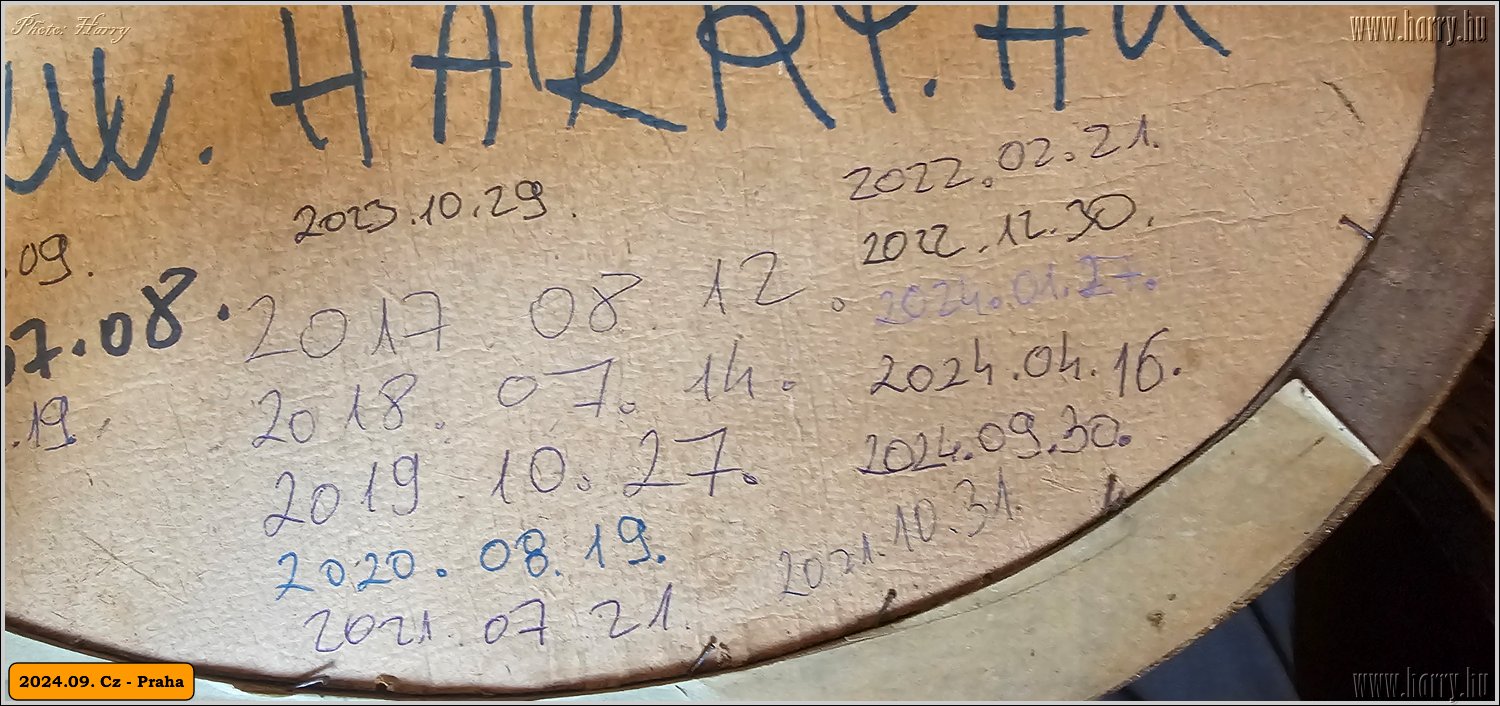 Photo: Harry
www.harry.hu
w. HARRY.HU
2023.10.29.
.09.
07.08.
.19.
2017. 08. 12.
2018. 07. 14.
2019. 10. 27.
2020. 08. 19.
2021. 07. 21.
2022.02.21.
2022.12.30.
2024.01.27.
2024.04.16.
2024.09.30.
2021.10.31.
2024.09. Cz - Praha
www.harry.hu